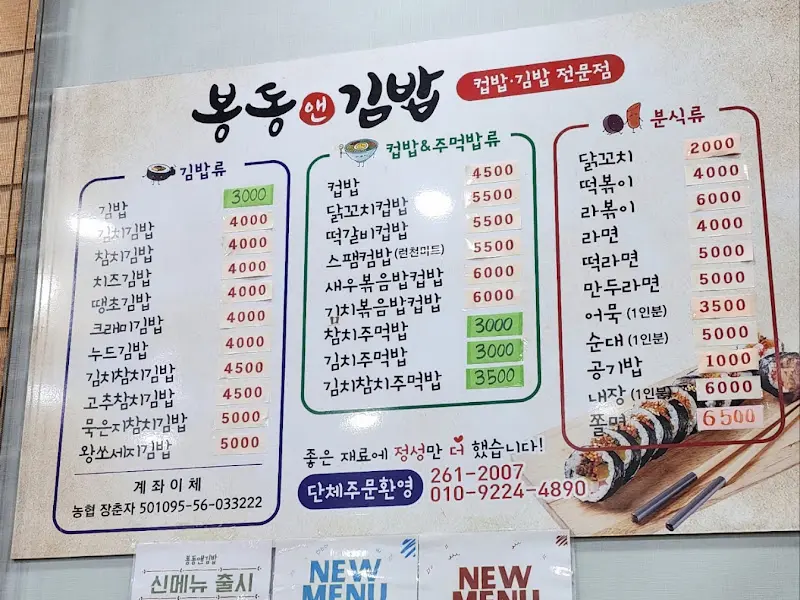 봉동앤김밥
컵밥·김밥 전문점
김밥류
김밥 3000
김치김밥 4000
참치김밥 4000
치즈김밥 4000
땡초김밥 4000
크래미김밥 4000
누드김밥 4000
김치참치김밥 4500
고추참치김밥 4500
묵은지참치김밥 5000
왕쏘세지김밥 5000
계좌이체
농협 장춘자 501095-56-033222
컵밥&주먹밥류
컵밥 4500
닭꼬치컵밥 5500
떡갈비컵밥 5500
스팸컵밥(런천미트) 5500
새우볶음밥컵밥 6000
김치볶음밥컵밥 6000
참치주먹밥 3000
김치주먹밥 3000
김치참치주먹밥 3500
분식류
닭꼬치 2000
떡볶이 4000
라볶이 6000
라면 4000
떡라면 5000
만두라면 5000
어묵 (1인분) 3500
순대 (1인분) 5000
공기밥 1000
내장 (1인분) 6000
쫄면 6500
좋은 재료에 정성만 더 했습니다!
단체주문환영
261-2007
010-9224-4890
봉동앤김밥
신메뉴 출시
NEW
MENU
NEW
MENU